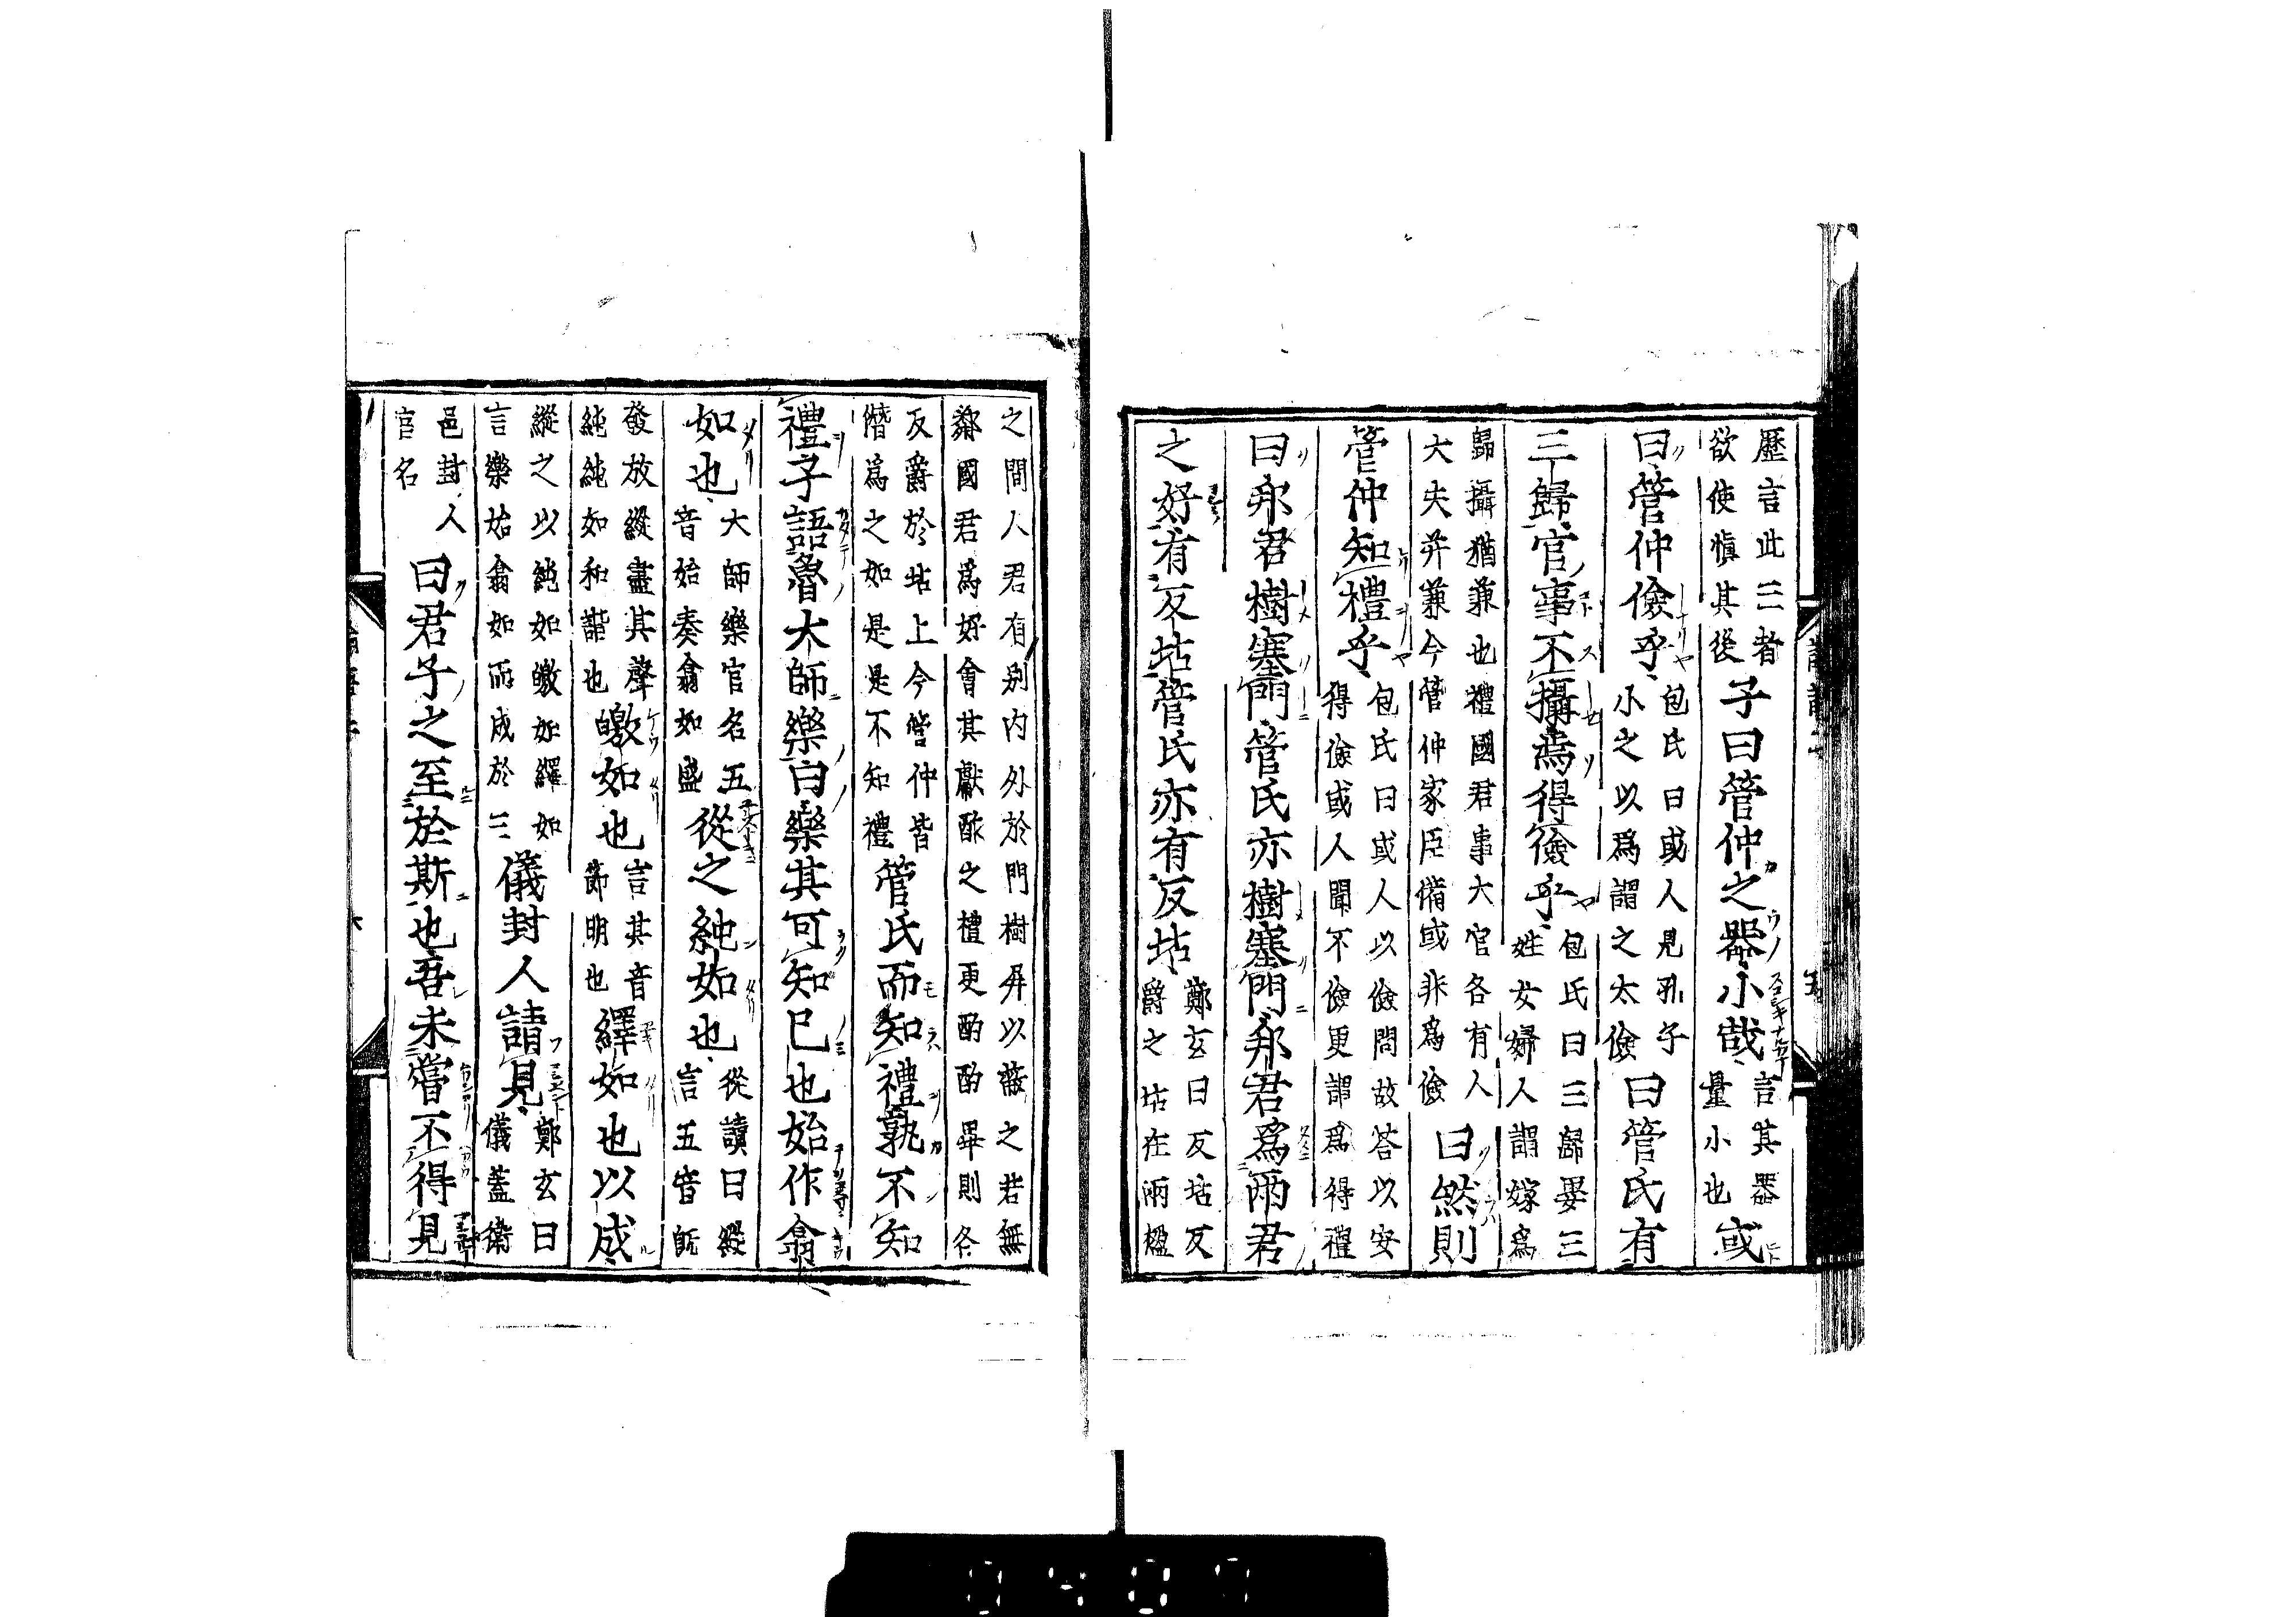 歷言此三者欲使愼其後子曰管仲之器小哉言其器量小也或
曰管仲儉乎包氏曰或人見孔子小之以爲謂之太儉曰管氏有
三歸官事不攝焉得儉乎包氏曰三歸娶三姓女婦人謂嫁爲
歸攝猶兼也禮國君事大官各有人大失并兼今管仲家臣備或非爲儉曰然則
管仲知禮乎包氏曰或人以儉問故荅以安得儉或人聞不儉更謂爲得禮
曰邦君樹塞門管氏亦樹塞門邦君爲兩君
之好有反坫管氏亦有反坫鄭玄曰反坫反爵之坫在兩楹
之間人君有別内外於門樹屏以蔽之若無鄰國君爲好會其獻酢之禮更酌酌畢則各
反爵於坫上今管仲皆僭爲之如是是不知禮管氏而知禮孰不知
禮子語魯大師樂曰樂其可知已也始作翕
如也大師樂官名五音始奏翕如盛從之純如也從讀曰縱言五音旣
發放縱盡其聲純純如和諧也皦如也言其音節明也繹如也以成
縱之以純如皦如繹如言樂始翕如而成於三儀封人請見鄭玄曰儀蓋衛
邑封人官名曰君子之至於斯也吾未嘗不得見